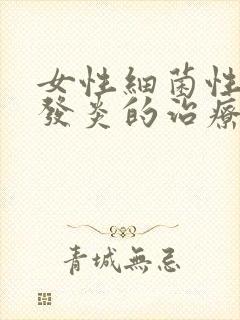 女性細菌性
發炎的治療
青城無忌